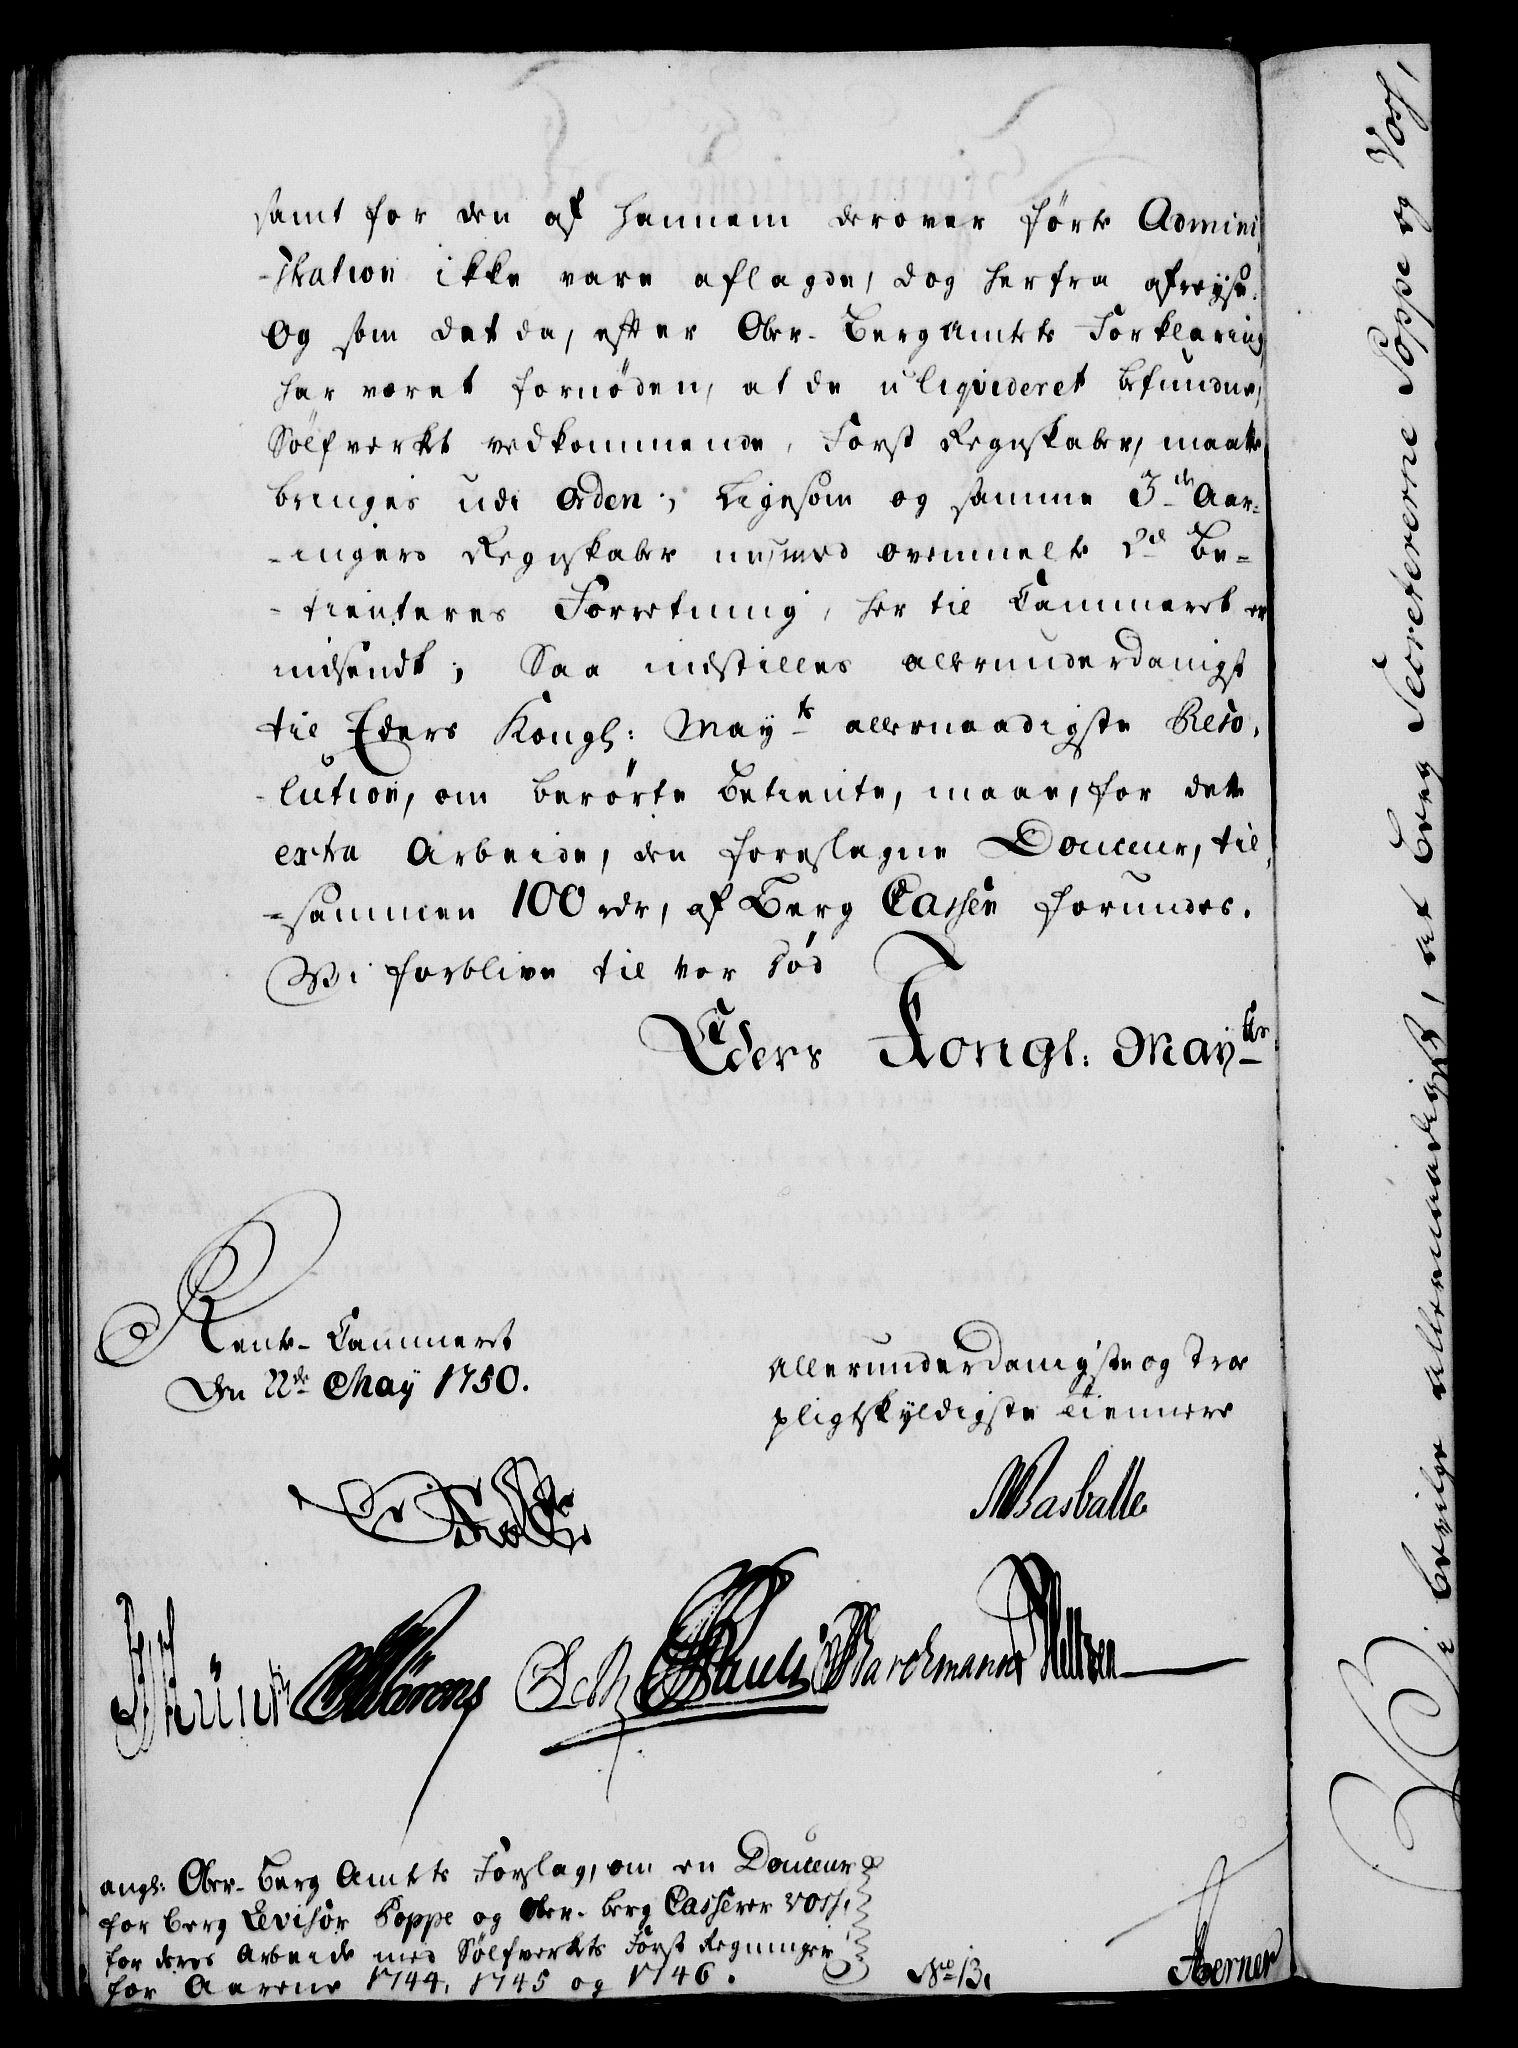 samt for den af hannem derover førte Admini,
-stration ikke vare aflagde, dog herfra afreyse.
Og som det da, efter Ober-BergAmtets Forklaring,
har været fornøden, at de uliqvideret befundne,
Sølfverket vedkommende, Forst Regnskaber, maatte
bringes udi Orden; Ligesom og samme 3de Aar-
-ingers Regnskaber med ovenmelte 2de Be-
-tienteres Forretning, her til Cammeret er
indsendt; Saa indstilles allerunderdanigst
til Eders Kongl: Mayts allernaadigste Reso,
-lution, om berørte Betiente, maae, for dette
extra Arbeide, den foreslagne Douceur, til,
-sammen 100 rdr, af Berg Cassen forundes.
Wi forblive til vor død
Eders Kongl: Mayts
Rente-Cammeret
Den 22de May 1750.
Allerunderdanigste og Troe
pligtskyldigste Tiennere
Masballe
angl: Ober-Berg Amtets Forslag, om en Douceur
for Berg Revisor Poppe og Ober-Berg Casserer Voss,
for deres Arbeide med Sølfverkets Forst Regninger
for Aarene 1744, 1745 og 1746.
No 13.
Berner
Wi bevilge allernaadigst, at Berg Secreterne Poppe og Voss,